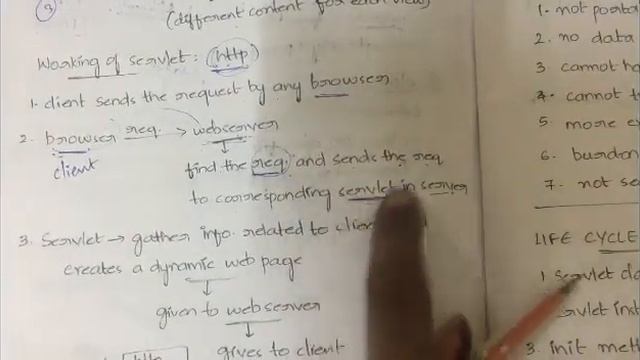 (different content for each view)
Working of servlet: (http)
1. client sends the request by any browser
2. browser req. → webserver
client
find the req. and sends the req
to corresponding servlet in server
3. Servlet → gather info. related to
creates a dynamic web page
given to webserver
gives to client
1. not
2. no data
3 cannot
4. cannot
5. more
6. burdon
7. not
LIFE CYCLE
1. Servlet
init
3. init